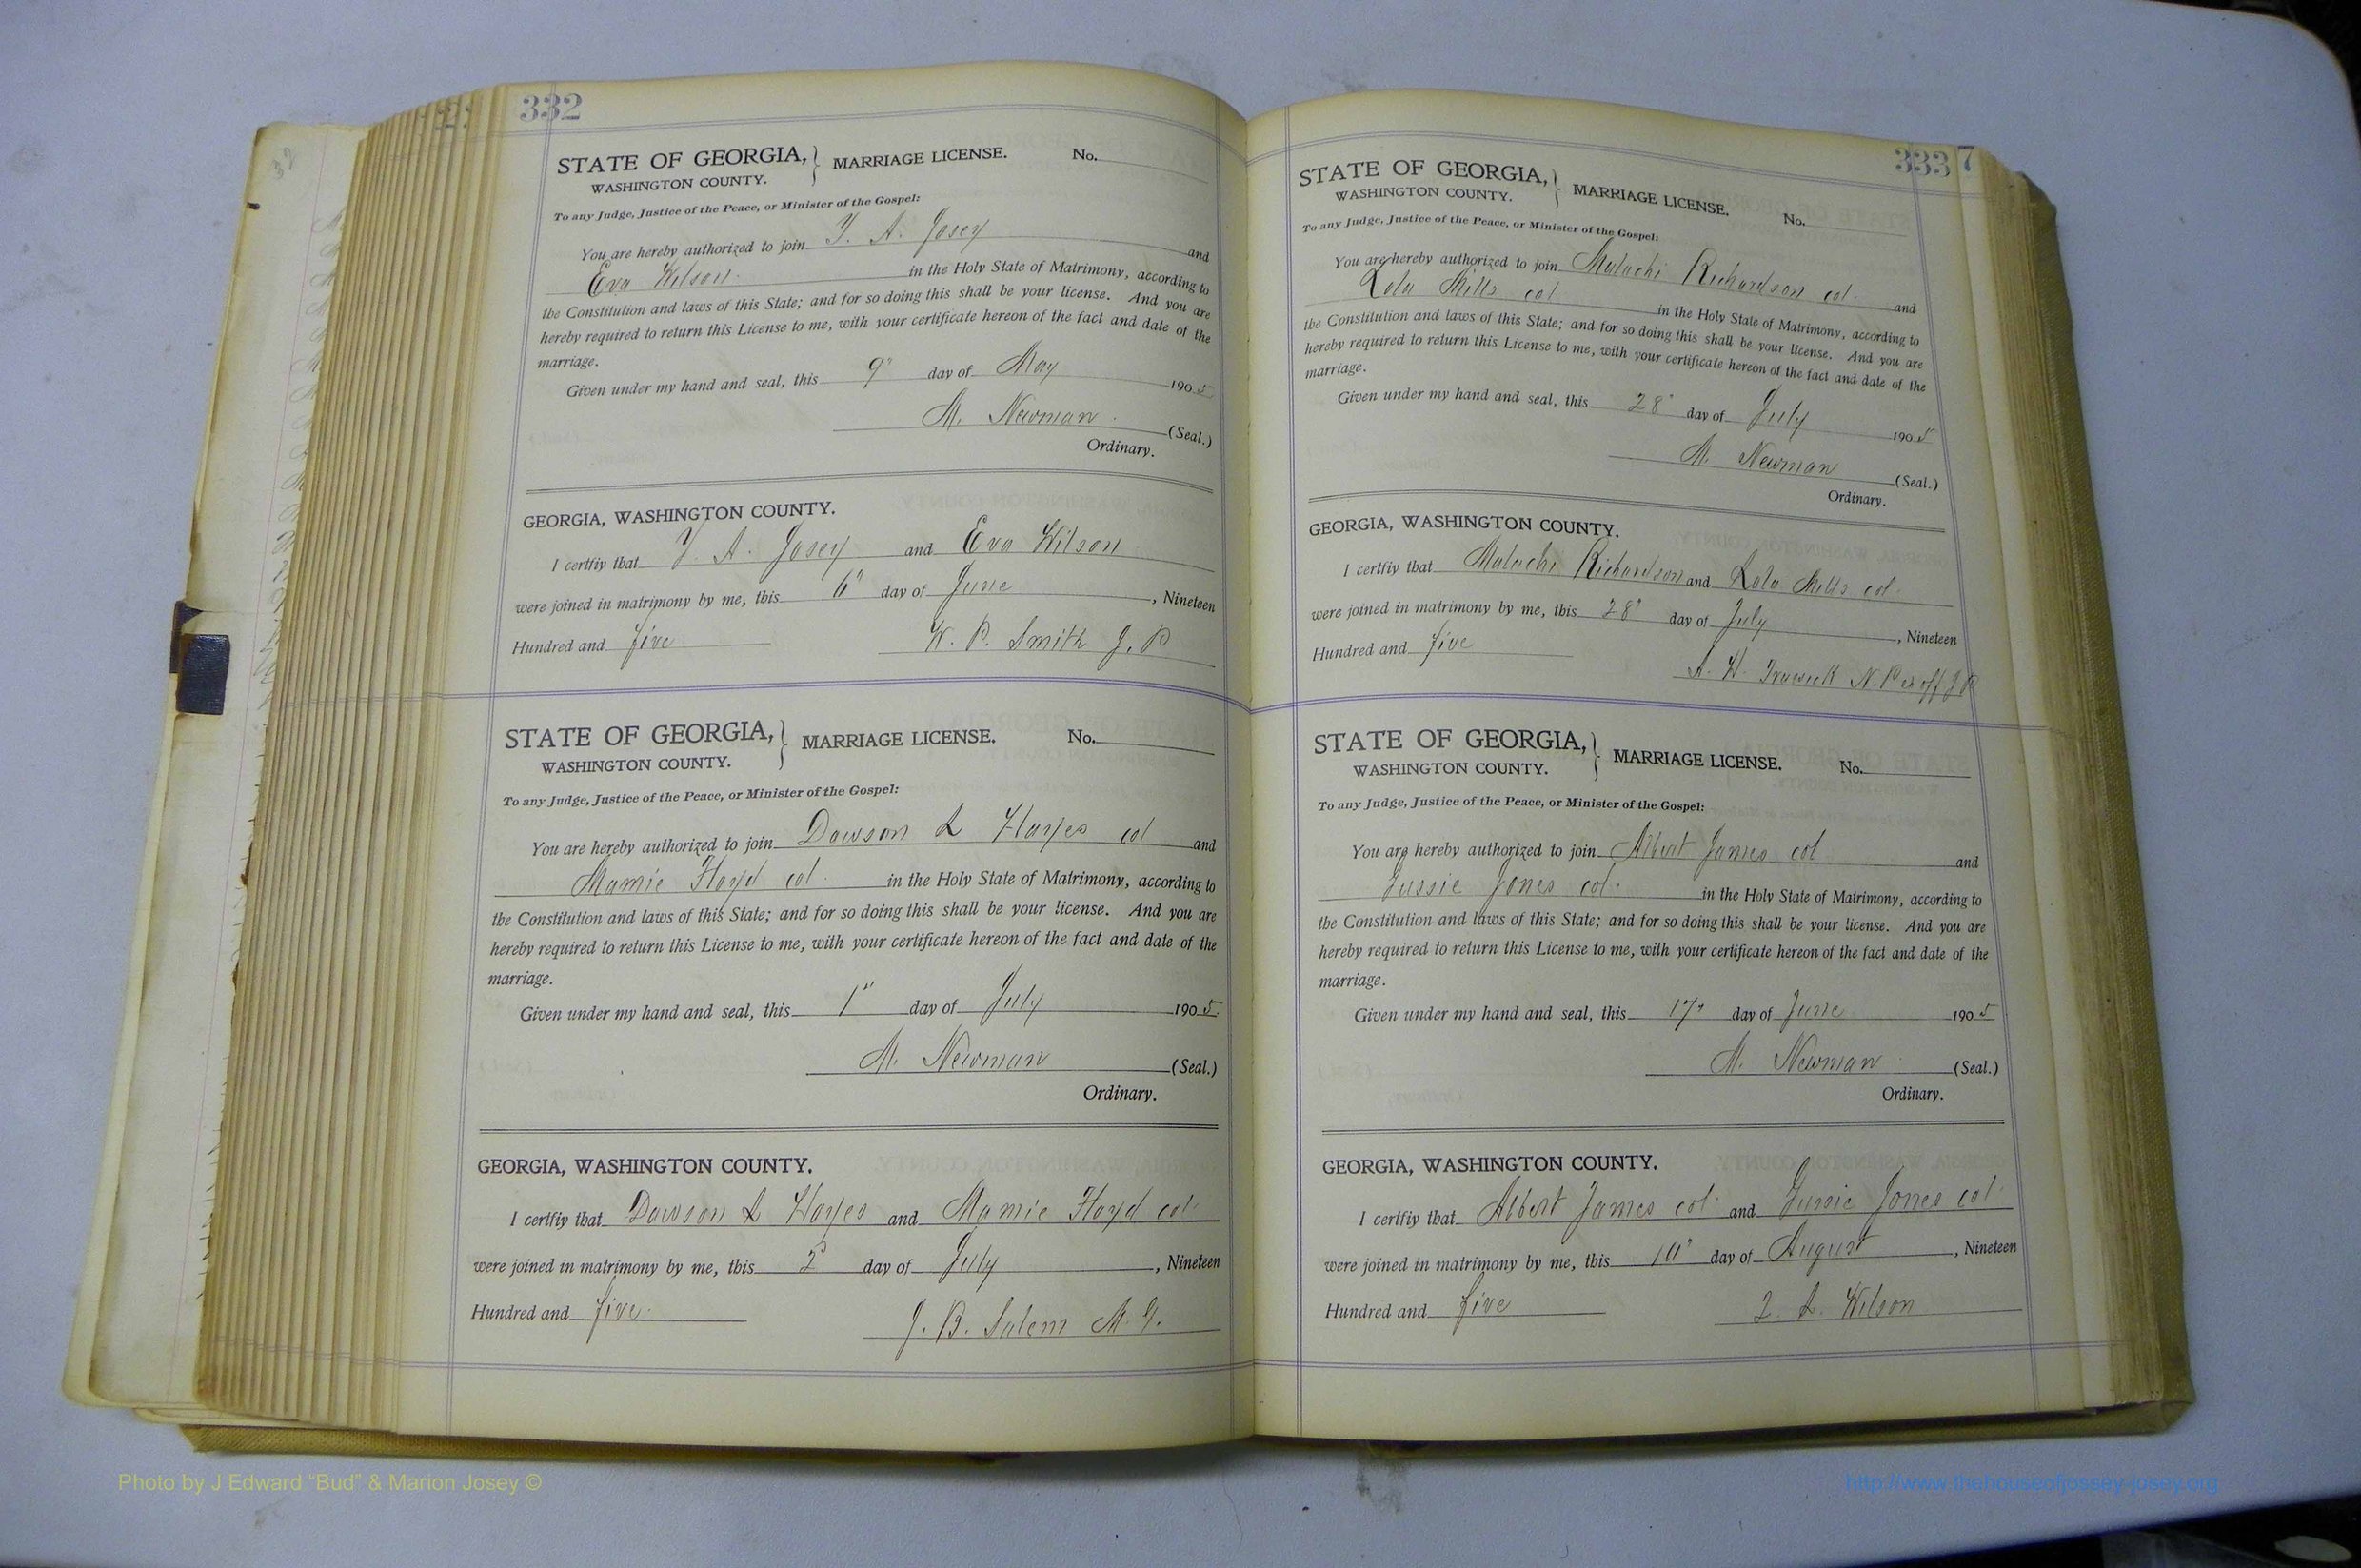 332
STATE OF GEORGIA, } MARRIAGE LICENSE. No.
WASHINGTON COUNTY.
To any Judge, Justice of the Peace, or Minister of the Gospel:
You are hereby authorized to join Y. A. Josey and
Eva Wilson in the Holy State of Matrimony, according to
the Constitution and laws of this State; and for so doing this shall be your license. And you are
hereby required to return this License to me, with your certificate hereon of the fact and date of the
marriage.
Given under my hand and seal, this 9" day of May 1905
M. Newman (Seal.)
Ordinary.
GEORGIA, WASHINGTON COUNTY.
I certfiy that Y. A. Josey and Eva Wilson
were joined in matrimony by me, this 6" day of June, Nineteen
Hundred and five W. P. Smith J. P
STATE OF GEORGIA, } MARRIAGE LICENSE. No.
WASHINGTON COUNTY.
To any Judge, Justice of the Peace, or Minister of the Gospel:
You are hereby authorized to join Dawson L Hayes col and
Mamie Floyd col. in the Holy State of Matrimony, according to
the Constitution and laws of this State; and for so doing this shall be your license. And you are
hereby required to return this License to me, with your certificate hereon of the fact and date of the
marriage.
Given under my hand and seal, this 1" day of July 1905
M. Newman (Seal.)
Ordinary.
GEORGIA, WASHINGTON COUNTY.
I certfiy that Dawson L Hayes and Mamie Floyd col.
were joined in matrimony by me, this 2" day of July, Nineteen
Hundred and five. J. B. Salem M. G.
333 7
STATE OF GEORGIA, } MARRIAGE LICENSE. No.
WASHINGTON COUNTY.
To any Judge, Justice of the Peace, or Minister of the Gospel:
You are hereby authorized to join Malachi Richardson col. and
Lola Mills col in the Holy State of Matrimony, according to
the Constitution and laws of this State; and for so doing this shall be your license. And you are
hereby required to return this License to me, with your certificate hereon of the fact and date of the
marriage.
Given under my hand and seal, this 28" day of July 1905
M. Newman (Seal.)
Ordinary.
GEORGIA, WASHINGTON COUNTY.
I certfiy that Malachi Richardson and Lola Mills col.
were joined in matrimony by me, this 28" day of July, Nineteen
Hundred and five
A. W. Trawick N. P ex off J P
STATE OF GEORGIA, } MARRIAGE LICENSE. No.
WASHINGTON COUNTY.
To any Judge, Justice of the Peace, or Minister of the Gospel:
You are hereby authorized to join Albert James col and
Gussie Jones col. in the Holy State of Matrimony, according to
the Constitution and laws of this State; and for so doing this shall be your license. And you are
hereby required to return this License to me, with your certificate hereon of the fact and date of the
marriage.
Given under my hand and seal, this 17" day of June 1905
M. Newman (Seal.)
Ordinary.
GEORGIA, WASHINGTON COUNTY.
I certfiy that Albert James col. and Gussie Jones col.
were joined in matrimony by me, this 10" day of August, Nineteen
Hundred and five L. Wilson
Photo by J Edward “Bud” & Marion Josey ©
http://www.thehouseofjossey-josey.org